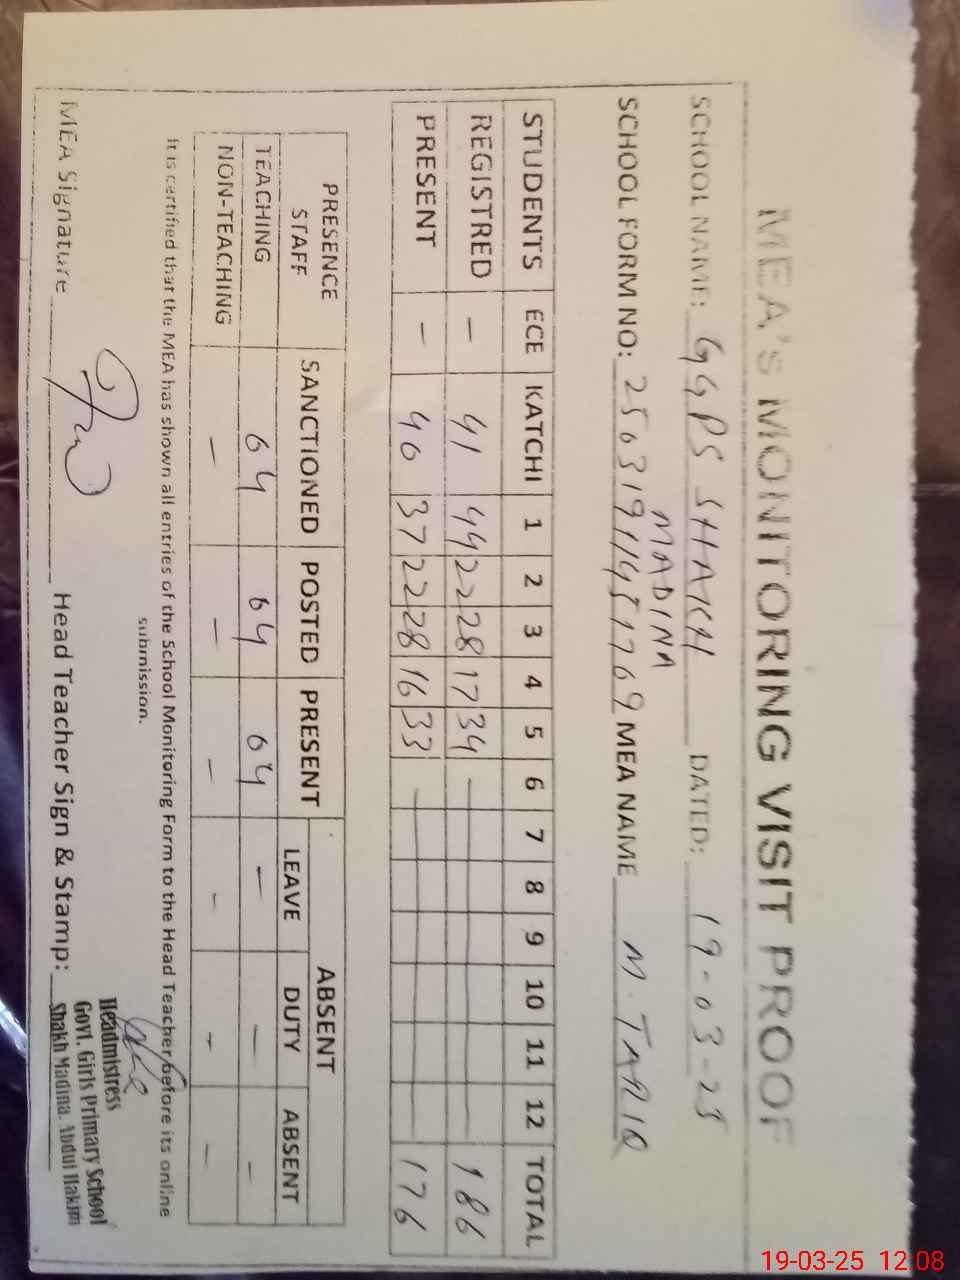 MEA's MONITORING VISIT PROOF
SCHOOL NAME: GGPS SHAKH DATED: 19-03-25
MADINA
SCHOOL FORM NO: MEA NAME M. TARIQ
STUDENTS ECE KATCHI 1 2 3 4 5 6 7 8 9 10 11 12 TOTAL
REGISTRED – 41 44 22 28 17 34 – 186
PRESENT – 40 37 22 28 16 33 – 176
PRESENCE STAFF SANCTIONED POSTED PRESENT ABSENT
LEAVE DUTY ABSENT
TEACHING 04 04 04 – – –
NON-TEACHING – – – – – –
It is certified that the MEA has shown all entries of the School Monitoring Form to the Head Teacher before its online
submission.
MEA Signature Head Teacher Sign & Stamp:
Headmistress
Govt. Girls Primary School
Shakh Madina. Abdul Hakim
19-03-25 12:08